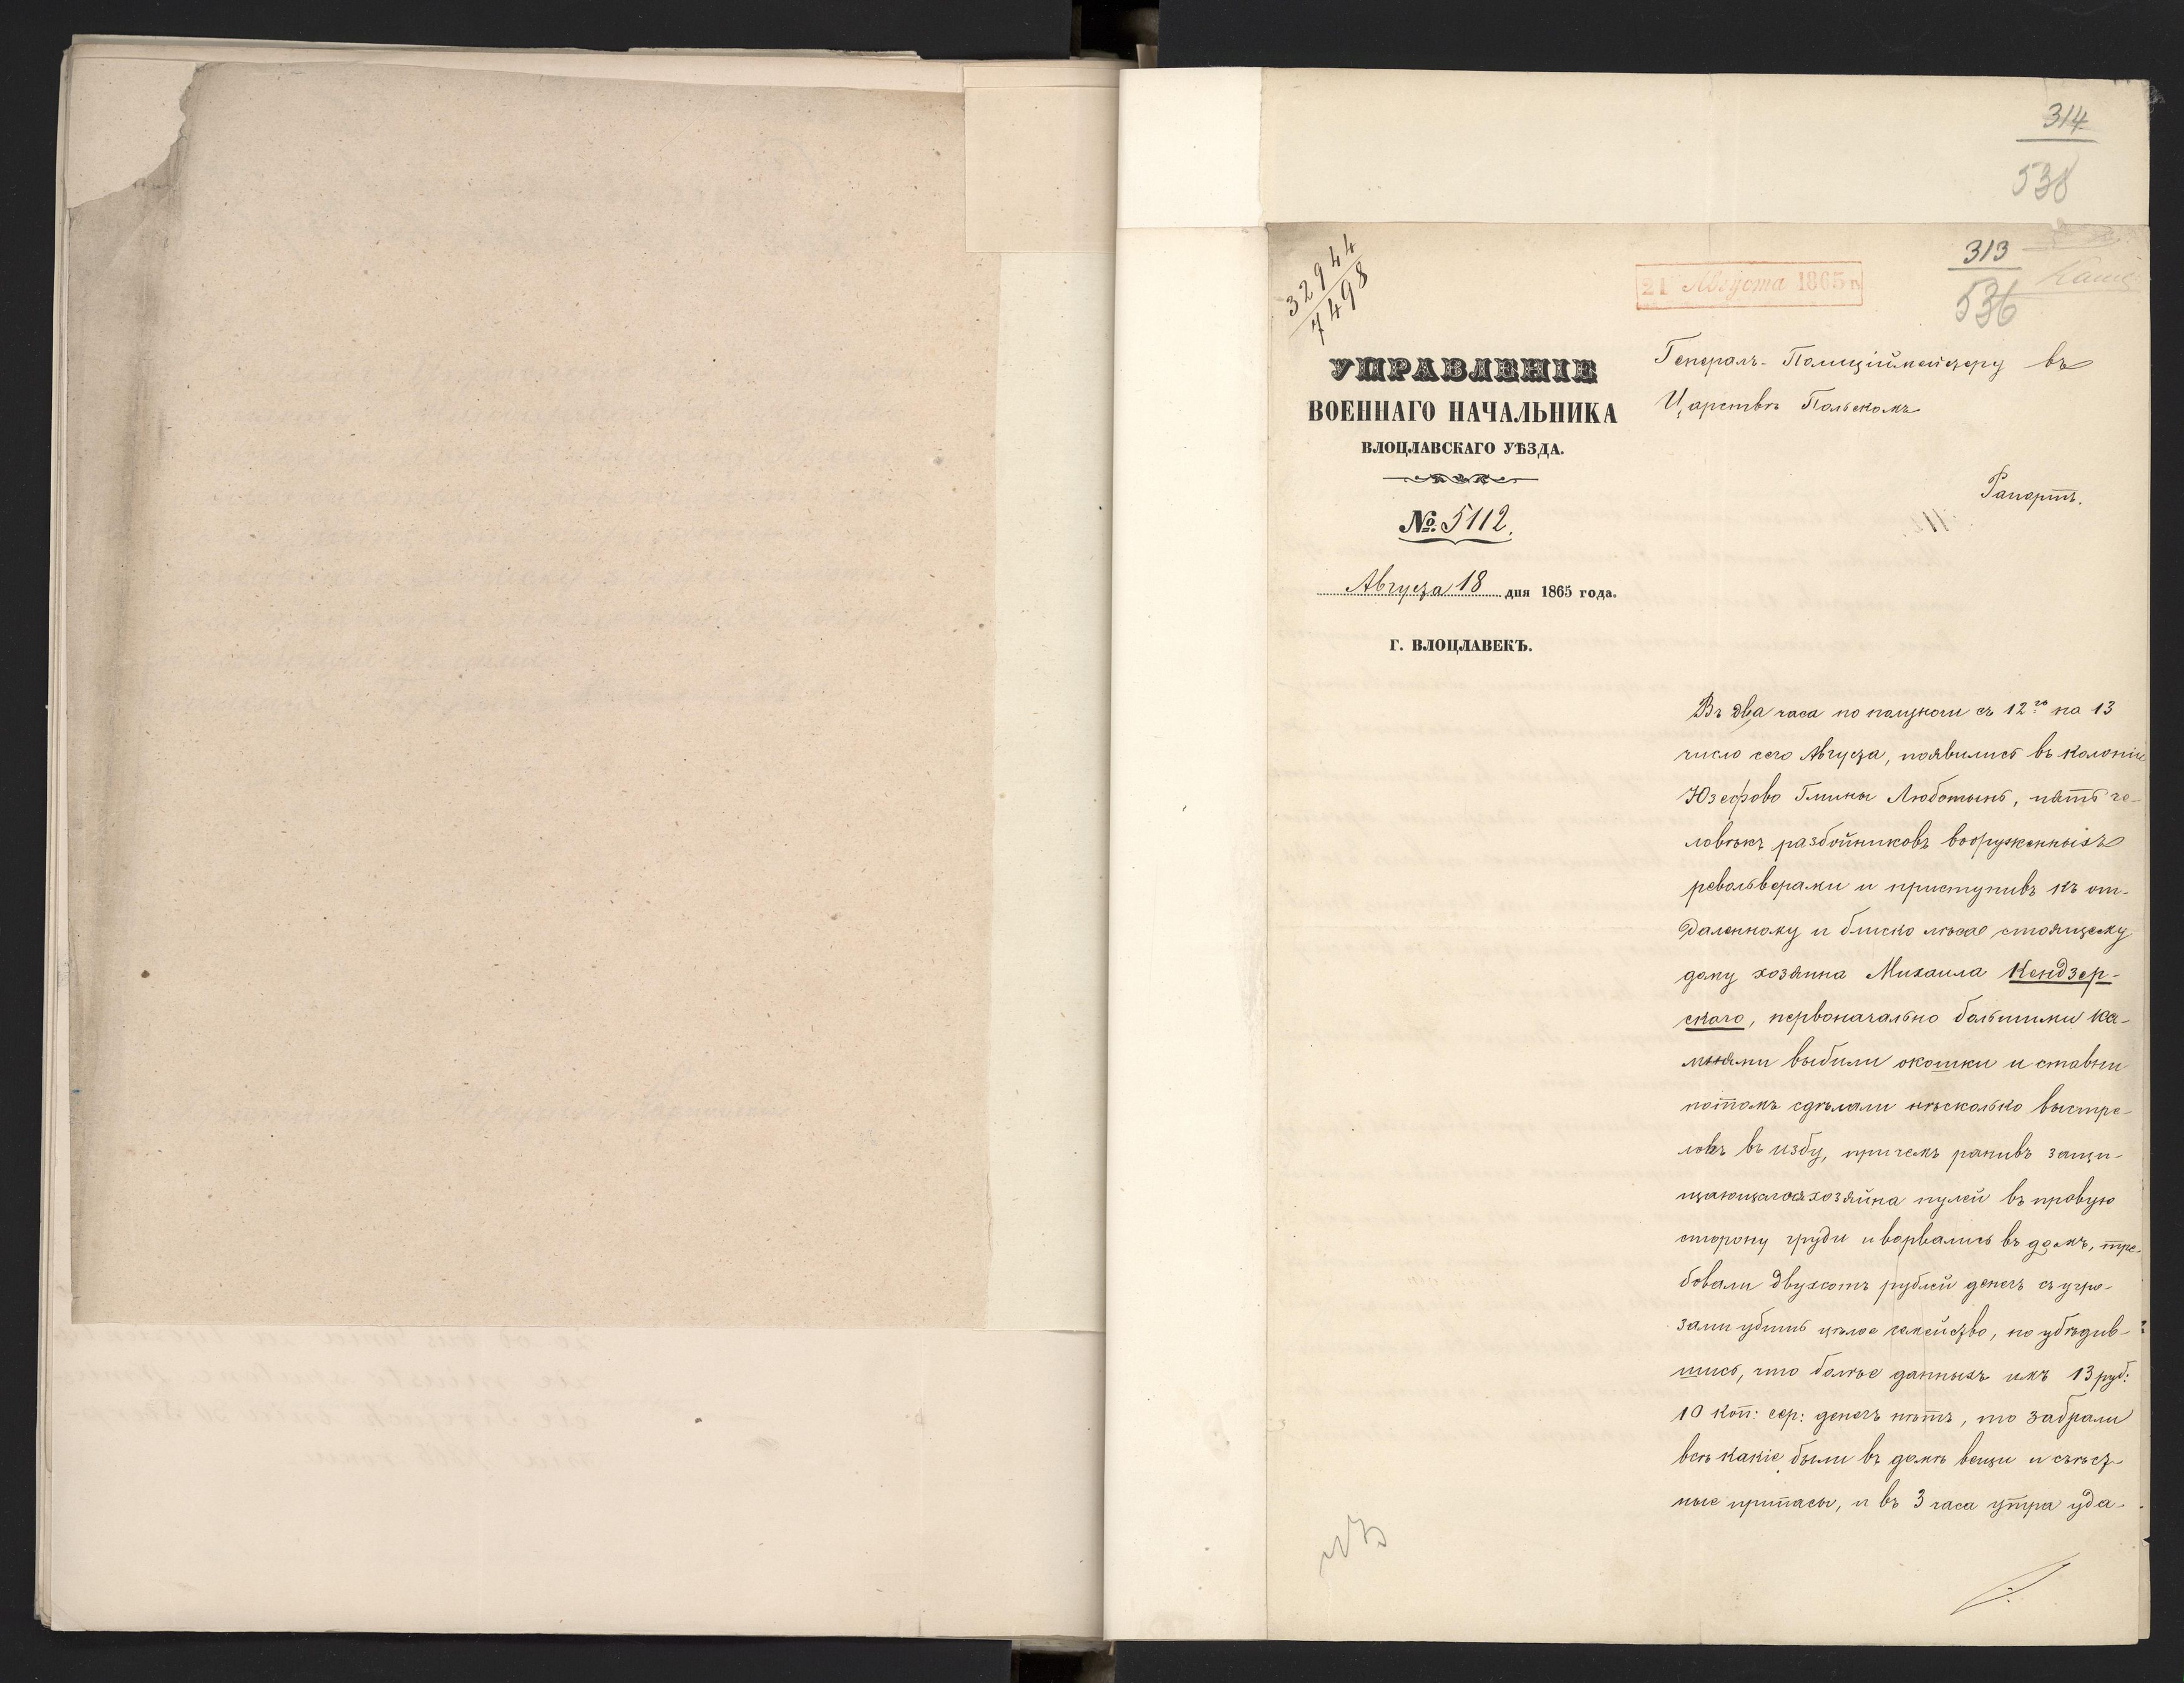 314
538
32944
7498
21 Августа 1865 г.
313
536
УПРАВЛЕНІЕ
ВОЕННАГО НАЧАЛЬНИКА
ВЛОЦЛАВСКАГО УѢЗДА.
№ 5112.
Августа 18 дня 1865 года.
Г. ВЛОЦЛАВЕКЪ.
Генералъ-Полиціймейстеру въ
Царствѣ Польскомъ
Рапортъ.
Въ два часа по полуночи съ 12го на 13
число сего Августа, появились въ колоніи
Юзефово Гмины Люботынь, пять че-
ловѣкъ разбойниковъ вооруженныхъ
револьверами и приступивъ къ от-
даленному и блиско лѣсае стоящему
дому хозяина Михаила Кендзер-
скаго, первоначально большими ка-
мнями выбили окошки и ставни
потомъ сдѣлали нѣсколько выстре-
ловъ въ избу, причемъ ранивъ защи-
щающагося хозяйна пулей въ правую
сторону груди и ворвались въ домъ, тре-
бовали двухсотъ рублей денегъ съ угро-
зами убить цѣлое семейство, но убѣдив-
шись, что болѣе данныхъ имъ 13 руб:
10 коп: сер: денегъ нѣтъ, то забрали
всѣ какіе были въ домѣ вещи и съѣст-
ные припасы, и въ 3 часа утра уда-